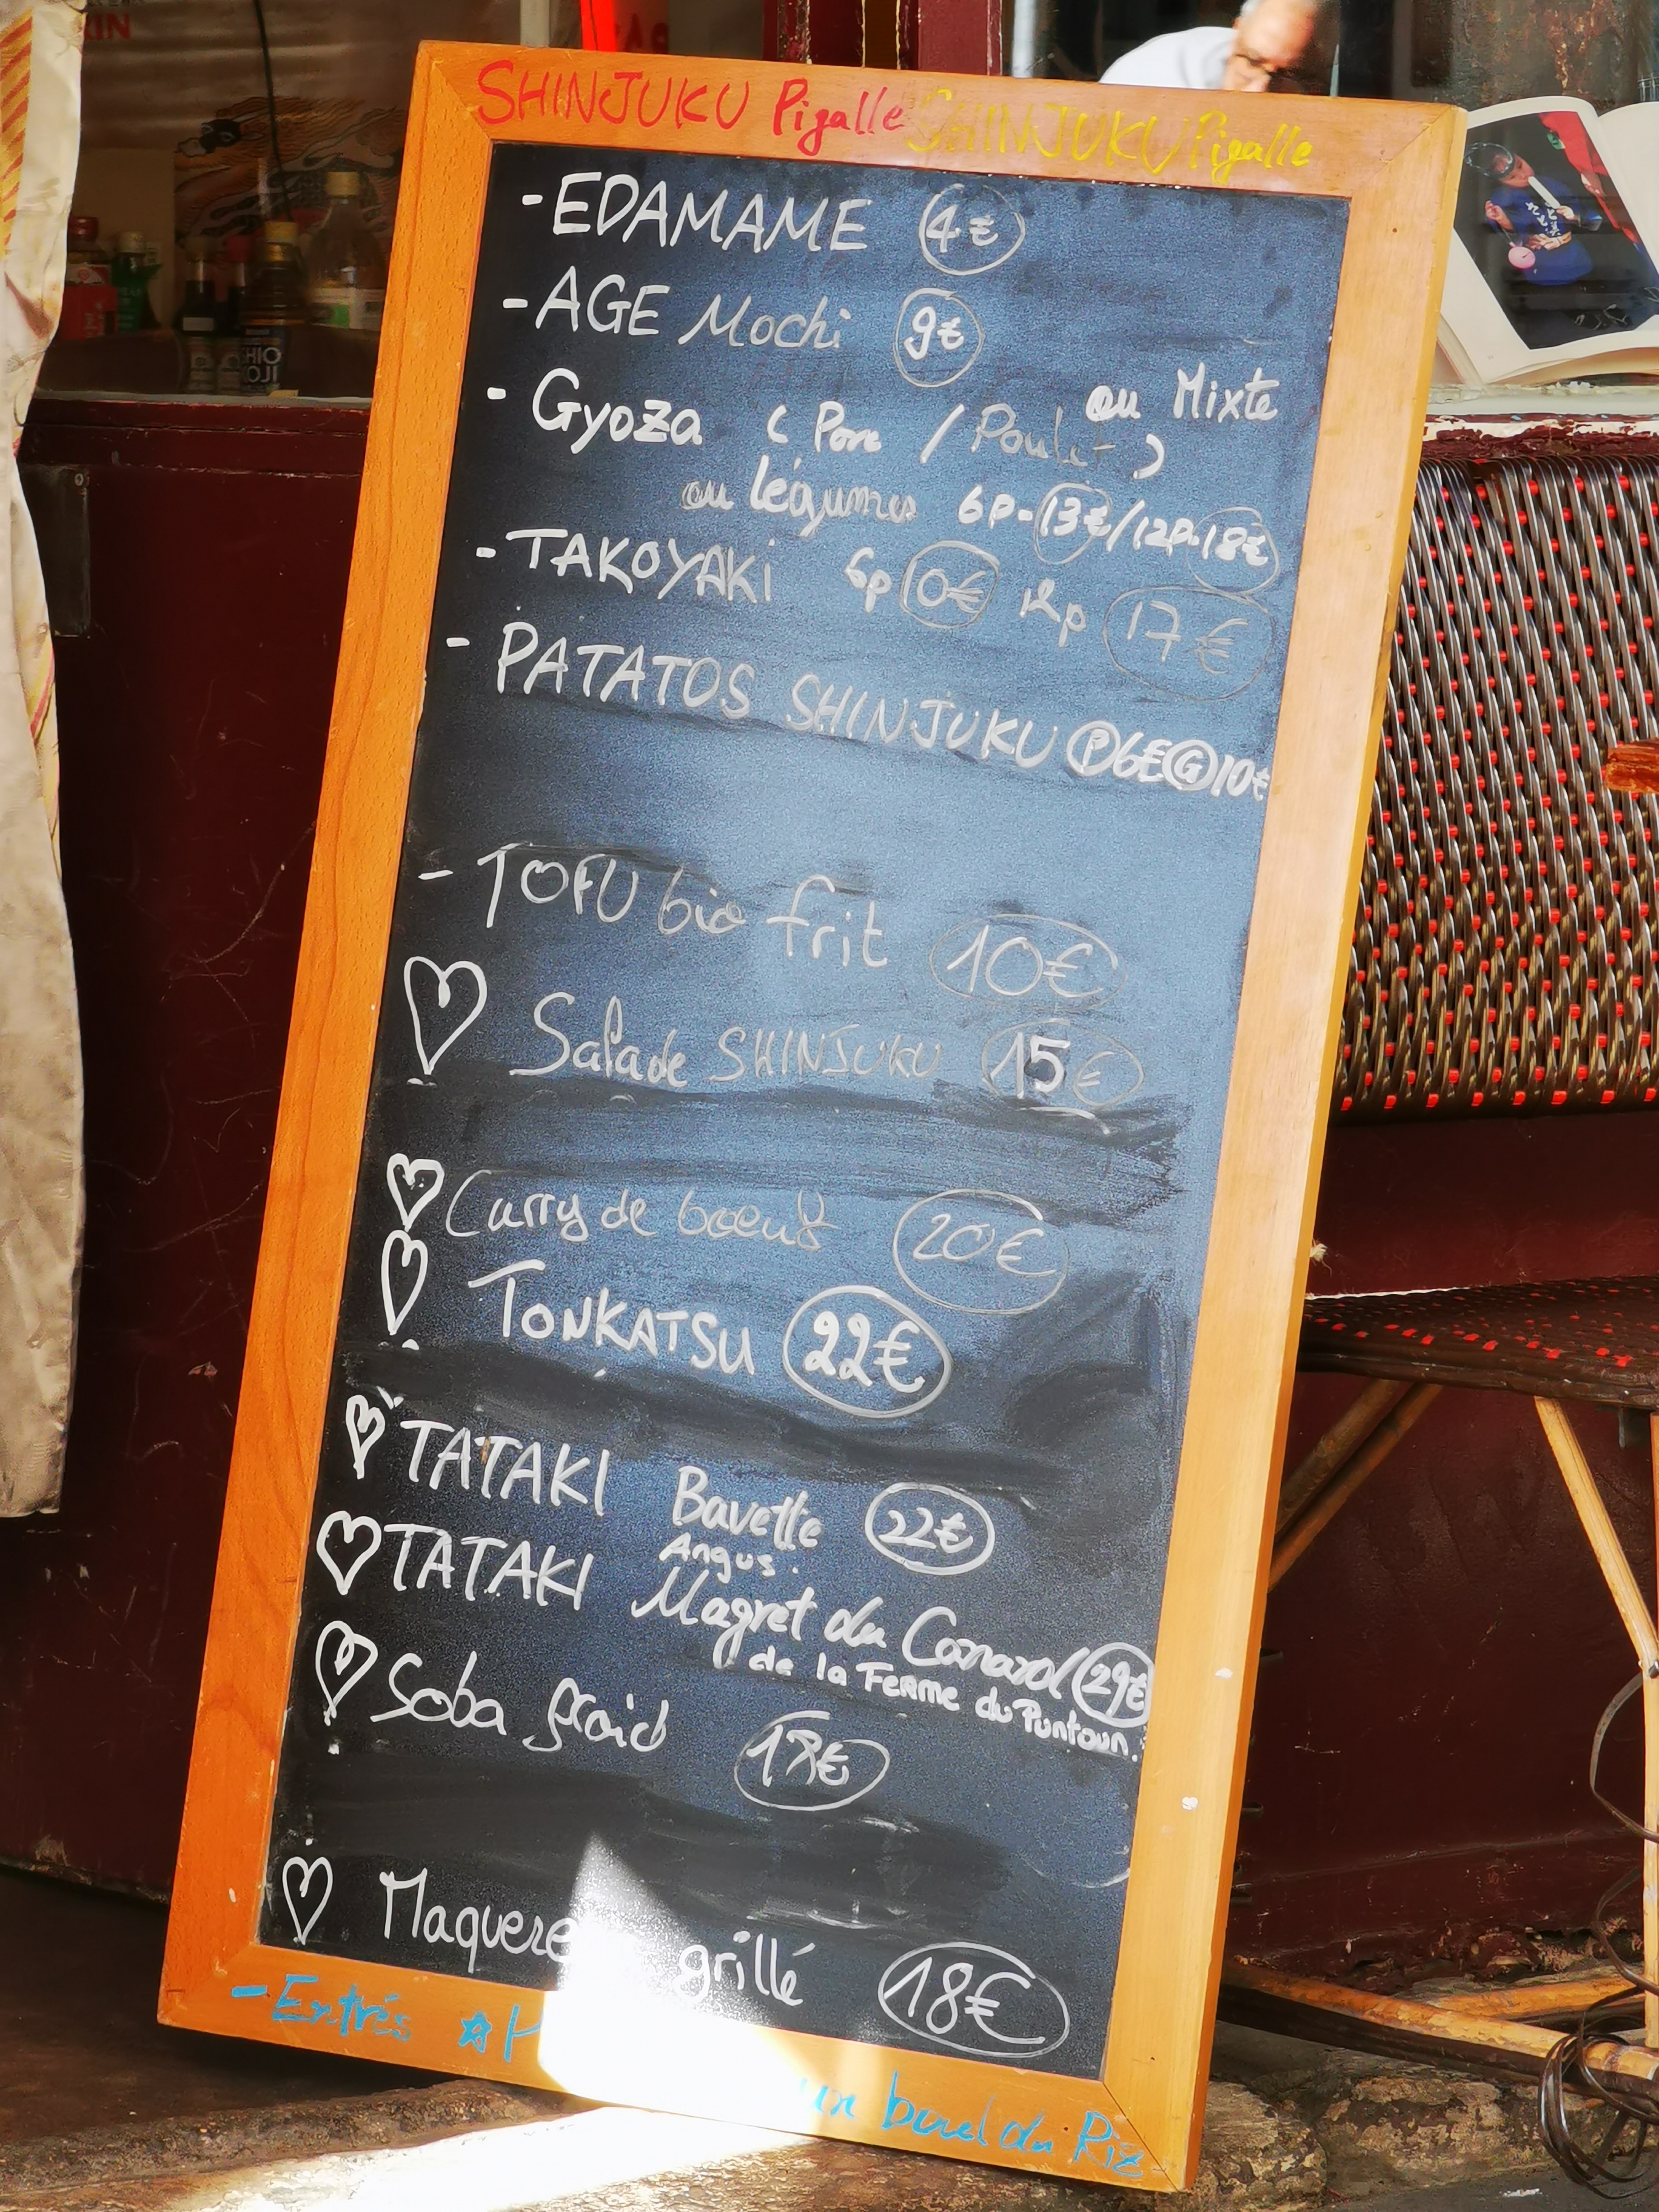 SHINJUKU Pigalle SHINJUKU Pigalle
- EDAMAME 4€
- AGE Mochi 9€
ou Mixte
- Gyoza ( Porc / Poulet )
ou légumes 6P-13€/12P-18€
- TAKOYAKI 6p 10€ 12p 17€
- PATATOS SHINJUKU P 6€ G 10€
- TOFU bio frit 10€
Salade SHINJUKU 15€
Curry de boeuf 20€
TONKATSU 22€
TATAKI Bavette 22€
Angus.
TATAKI Magret du Canard 29€
de la FERME du Puntoun.
Soba froid
Maquere grillé 18€
- Entrés
bord du Riz-
HIO
OJI